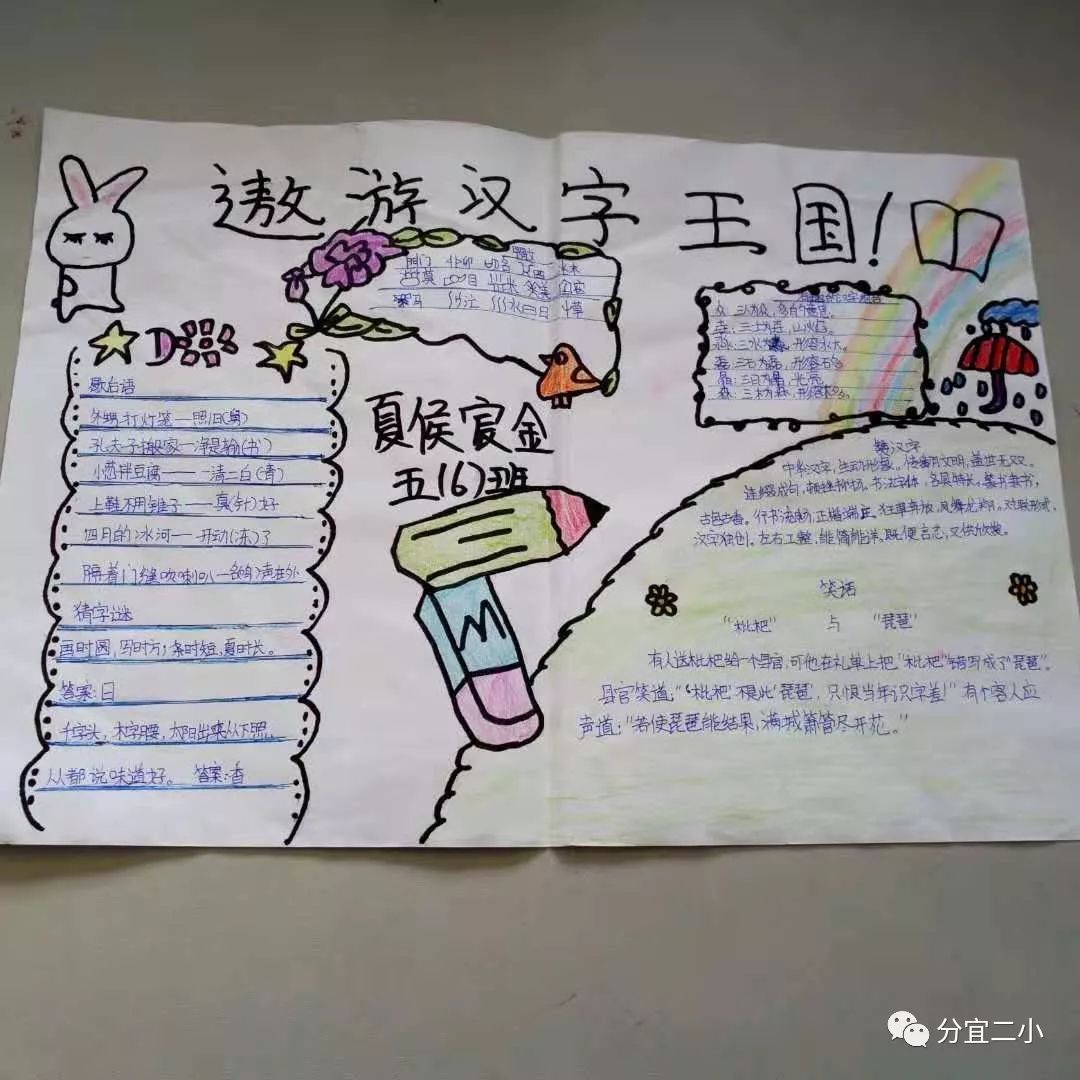 遨游汉字王国!
门
马 江 水 日
众:三人为众,
三土为垚,山
淼:三水为淼,形容水大。
磊:三石为磊,形容石多
晶:三日为晶,光亮
森:三木为森,形容木多。
歇后语
外甥打灯笼—照旧(舅)
孔夫子搬家—净是输(书)
小葱拌豆腐——一清二白(青)
上鞋不用锥子——真(针)好
四月的冰河—开动(冻)了
隔着门缝吹喇叭—声在外
猜字谜
画时圆,写时方;冬时短,夏时长。
答案:日
千字头,木字腰,太阳出来从下照,
从都说味道好。 答案:香
夏侯宸金
五(6)班
汉字
中华汉字,生动形象。传播文明,盖世无双。
连缀成句,顿挫抑扬。书法字体,各具特长。篆书隶书,
古色古香。行书流畅,正楷端正。狂草奔放,凤舞龙翔。对联形式,
汉字独创。左右工整,能简能详。既便言志,又供欣赏。
笑话
“枇杷” 与 “琵琶”
有人送枇杷给一个县官,可他在礼单上把“枇杷”错写成了“琵琶”。
县官笑道:“‘枇杷’不是此‘琵琶’,只恨当年识字差!”有个客人应
声道:“若使琵琶能结果,满城箫管尽开花。”
分宜二小